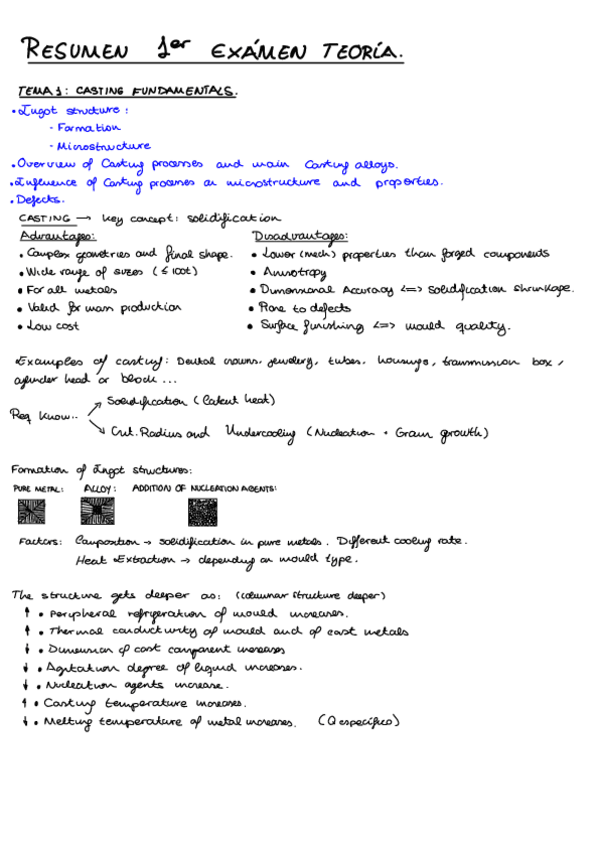 RESUMEN 1er EXÁMEN TEORÍA.
TEMA 1: CASTING FUNDAMENTALS.
• Ingot structure:
- Formation
- Microstructure
• Overview of Casting processes and main Casting alloys.
• Influence of Casting processes on microstructure and properties.
• Defects.
CASTING → key concept: solidification
Advantages: Disadvantages:
• Complex geometries and final shape. • Lower (mech) properties than forged components
• Wide range of sizes (≤ 100t) • Anisotropy
• For all metals • Dimensional Accuracy <=> Solidification shrinkage.
• Valid for mass production • Prone to defects
• Low cost • Surface finishing <=> mould quality.
• Examples of casting: Dental crowns, jewelery, tubes, housings, transmission box,
cylinder head or block ...
Req know.. Solidification (Latent heat)
Crit. Radius and Undercooling (Nucleation + Grain growth)
Formation of Ingot structures:
PURE METAL: ALLOY: ADDITION OF NUCLEATION AGENTS:
Factors: Composition → solidification in pure metals. Different cooling rate.
Heat Extraction → depending on mould type.
The structure gets deeper as: (columnar structure deeper)
↑ • Peripheral refrigeration of mould increases.
↑ • Thermal conductivity of mould and of cast metals
↓ • Dimension of cast component increases
↓ • Agitation degree of liquid increases.
↓ • Nucleation agents increase.
↑ • Casting temperature increases.
↓ • Melting temperature of metal increases. (Q específico)